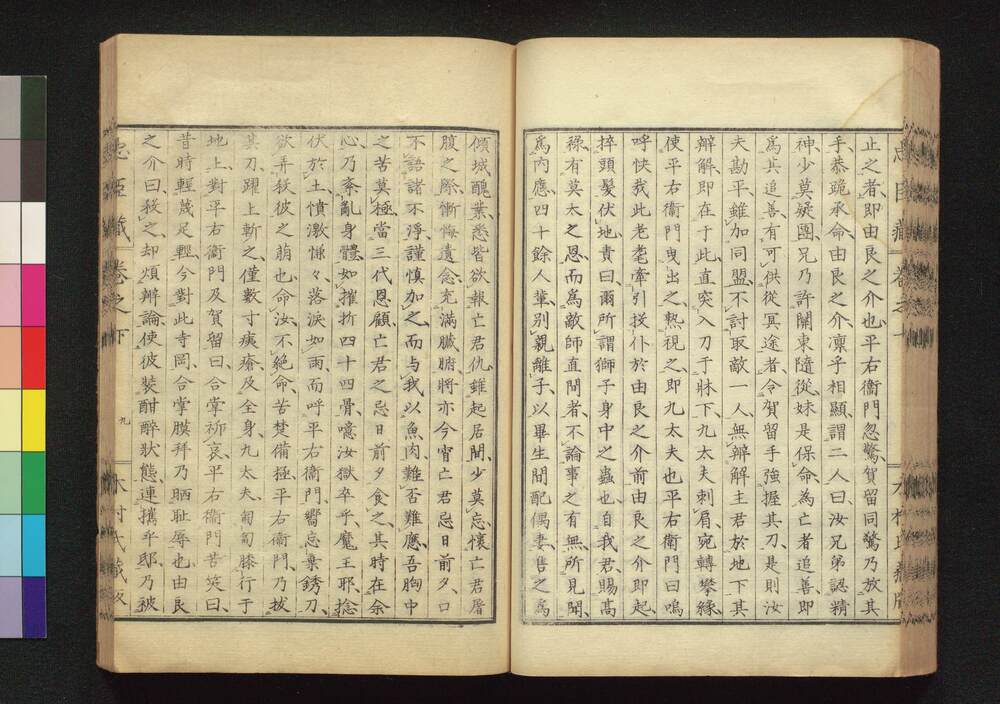 止之者、即由良之介也、平右衞門忽驚、賀留同驚、乃放其
手、恭跪承命、由良之介凛乎相顯、謂二人曰、汝兄弟認精
神、少莫疑團、兄乃許關東隨從、妹是保命、為亡者追善、即
爲其追善、有可供從冥途者、令賀留手強握其刀、是則汝
夫勘平、雖加同盟、不討取敵一人、無辨解主君於地下、其
辨解、即在于此、直突入刀于牀下、九太夫刺肩、宛轉攀緣、
使平右衞門曳出之、熟視之、即九太夫也、平右衞門曰、嗚
呼快哉、此老耄、牽引投仆於由良之介前、由良之介即起
捽頭髮伏地、責曰、爾所謂獅子身中之蟲也、自我君賜高
祿、有莫大之恩、而爲敵師直間者、不論事之有無、所見聞、
爲内應、四十餘人輩、別親離子、以畢生間配偶妻、售之爲
傾城醜業、悉皆欲報亡君仇、雖起居間、少莫忘懷、亡君屠
腹之際、慚悔遺念、充滿臟腑、將亦今宵亡君忌日前夕、口
不語諸不淨、謹愼加之、而与我以魚肉、難否難應、吾胸中
之苦莫極、當三代恩顧、亡君之忌日前夕食之、其時在余
心乃紊亂、身體如摧折四十四骨、噫汝獄卒乎、魔王耶、捻
伏於土、憤激慷々、落淚如雨、而呼平右衞門、嚮忘棄銹刀、
欲弄殺彼之萠也、命汝、不絶命、苦楚備極、平右衞門、乃拔
其刀、躍上斬之、僅數寸痍瘡及全身、九太夫、匍匐膝行于
地上、對平右衞門及賀留曰、合掌祈哀、平右衞門苦笑曰、
昔時輕蔑足輕、今對此寺岡、合掌膜拜、乃晒耻辱也、由良
之介曰、殺之却煩辨論、使彼裝酣醉狀態、連攜乎邸、乃被
忠臣藏 卷之下 九